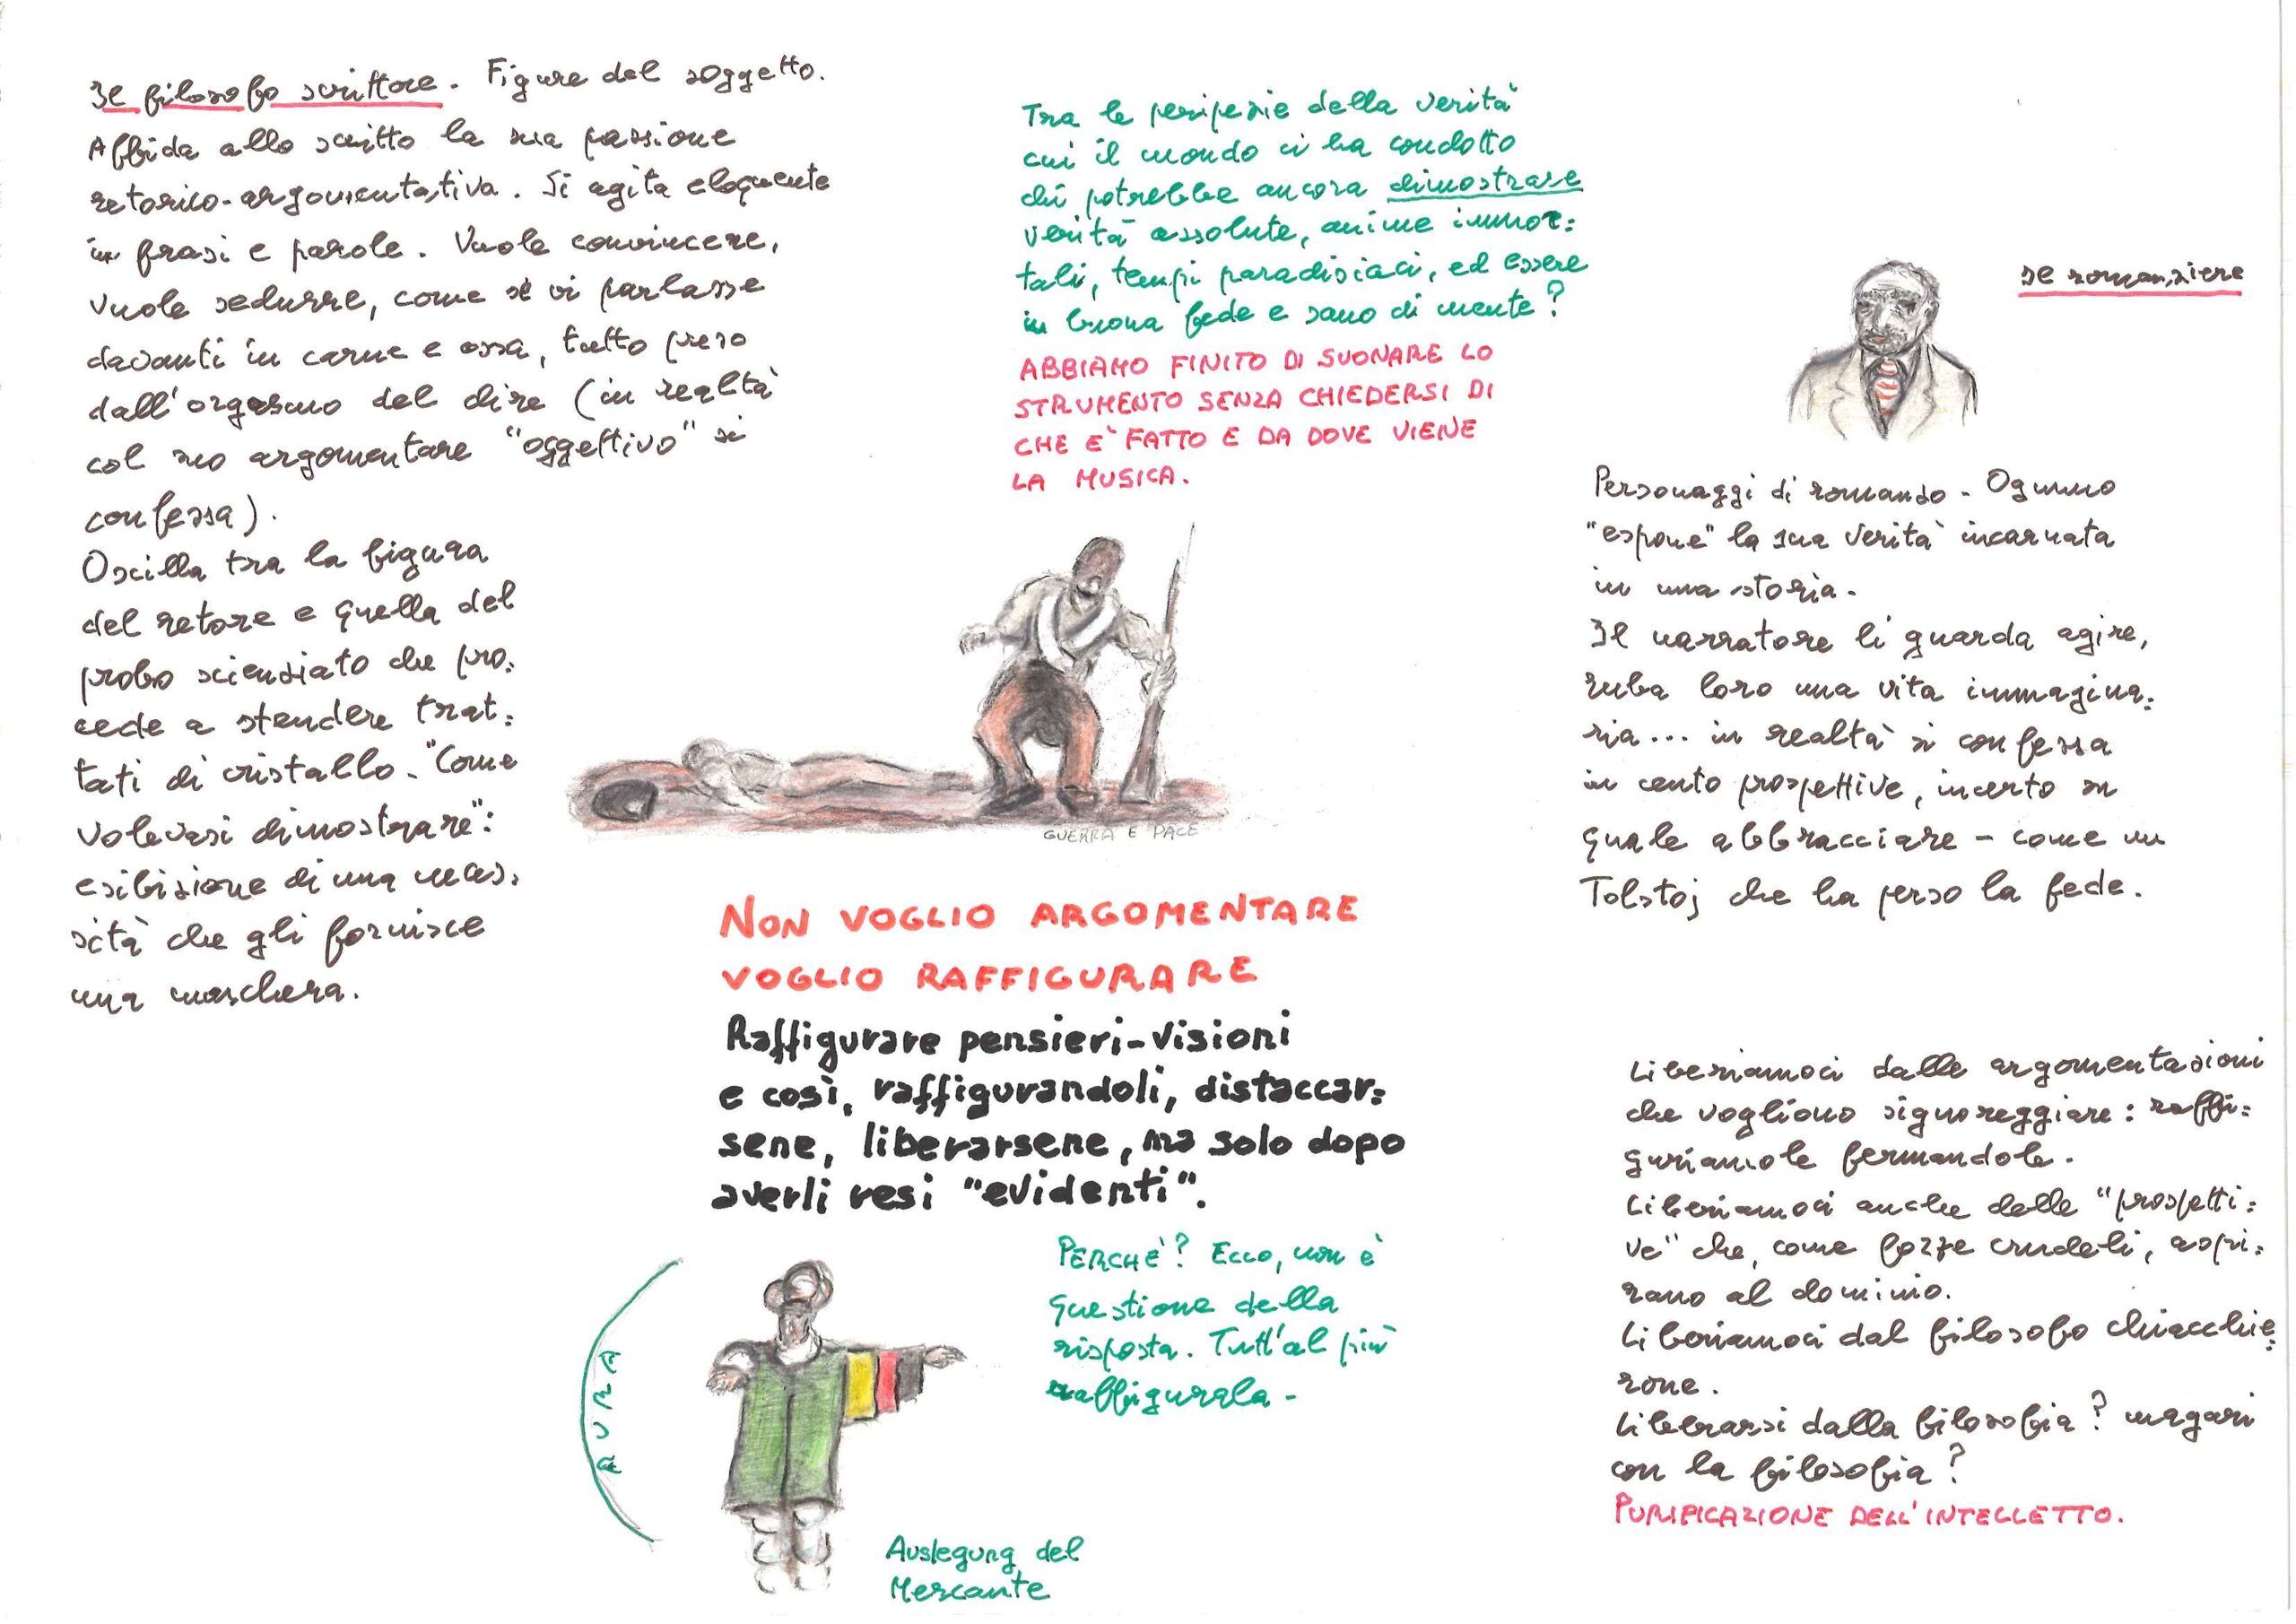 Il filosofo scrittore. Figure del soggetto.
Affida allo scritto la sua passione
retorico-argomentativa. Si agita eloquente
in frasi e parole. Vuole convincere,
vuole sedurre, come se vi parlasse
davanti in carne e ossa, tutto preso
dall'orgasmo del dire (in realtà
col suo argomentare "oggettivo" si
confessa).
Oscilla tra la figura
del retore e quella del
probo scienziato che pro:
cede a stendere trat:
tati di cristallo. "Come
volevasi dimostrare":
esibizione di una neces:
sità che gli fornisce
una maschera.
Tra le peripezie della verità
cui il mondo ci ha condotto
chi potrebbe ancora dimostrare
verità assolute, anime immor:
tali, tempi paradisiaci, ed essere
in buona fede e sano di mente?
ABBIAMO FINITO DI SUONARE LO
STRUMENTO SENZA CHIEDERSI DI
CHE E' FATTO E DA DOVE VIENE
LA MUSICA.
GUERRA E PACE
NON VOGLIO ARGOMENTARE
VOGLIO RAFFIGURARE
Raffigurare pensieri-visioni
e così, raffigurandoli, distaccar:
sene, liberarsene, ma solo dopo
averli resi "evidenti".
AURA
PERCHE'? Ecco, non è
questione della
risposta. Tutt'al più
raffigurala -
Auslegung del
Mercante
Il romanziere
Personaggi di romanzo - Ognuno
"espone" la sua verità incarnata
in una storia -
Il narratore li guarda agire,
ruba loro una vita immagina:
ria... in realtà si confessa
in cento prospettive, incerto su
quale abbracciare - come un
Tolstoj che ha perso la fede.
Liberiamoci dalle argomentazioni
che vogliono signoreggiare: raffi:
guriamole fermandole.
Liberiamoci anche delle "prospetti:
ve" che, come forze crudeli, aspi:
rano al dominio.
Liberiamoci dal filosofo chiacchie:
rone.
Liberarsi dalla filosofia? magari
con la filosofia?
PURIFICAZIONE DELL'INTELLETTO.